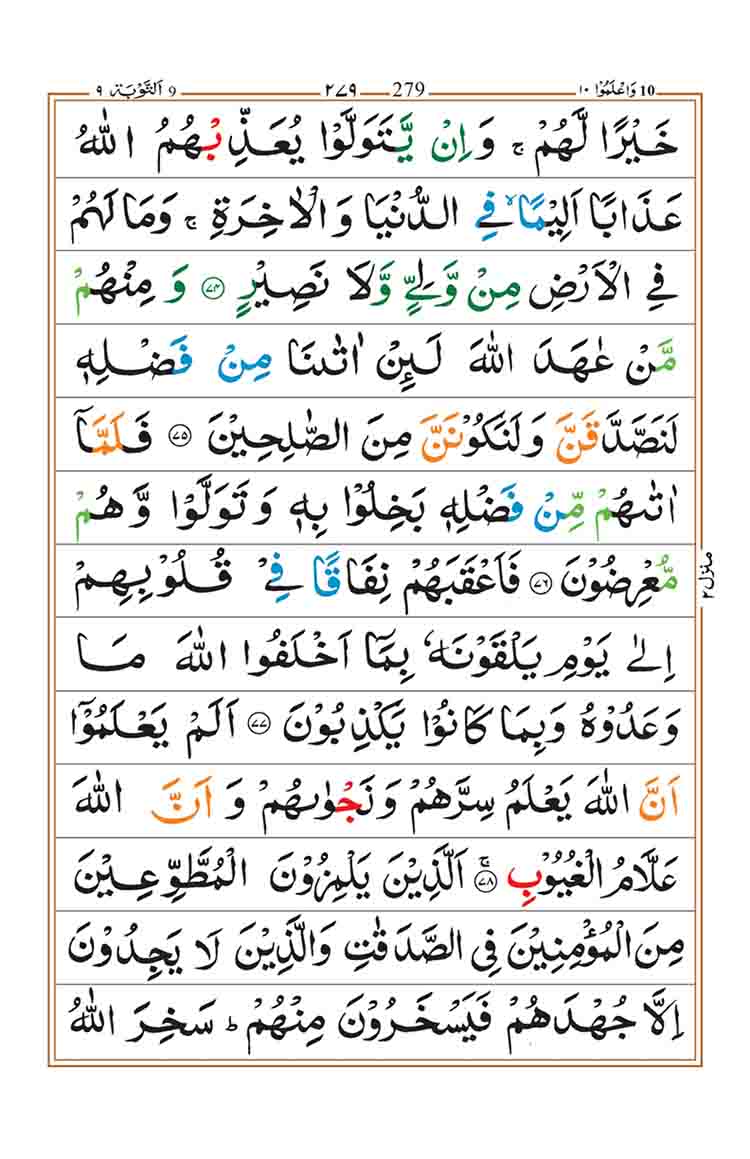 10 وَاعْلَمُوْۤا ١٠ 279 ٢٧٩ 9 اَلتَّوْبَة ٩
خَيْرًا لَّهُمْ ۚ وَاِنْ يَّتَوَلَّوْا يُعَذِّبْهُمُ اللّٰهُ
عَذَابًا اَلِيْمًا ۙ فِي الدُّنْيَا وَالْاٰخِرَةِ ۚ وَمَا لَهُمْ
فِي الْاَرْضِ مِنْ وَّلِيٍّ وَّلَا نَصِيْرٍ ۝٧٤ وَمِنْهُمْ
مَّنْ عٰهَدَ اللّٰهَ لَئِنْ اٰتٰىنَا مِنْ فَضْلِهٖ
لَنَصَّدَّقَنَّ وَلَنَكُوْنَنَّ مِنَ الصّٰلِحِيْنَ ۝٧٥ فَلَمَّاۤ
اٰتٰىهُمْ مِّنْ فَضْلِهٖ بَخِلُوْا بِهٖ وَتَوَلَّوْا وَّهُمْ
مُّعْرِضُوْنَ ۝٧٦ فَاَعْقَبَهُمْ نِفَاقًا فِيْ قُلُوْبِهِمْ
اِلٰى يَوْمِ يَلْقَوْنَهٗ بِمَاۤ اَخْلَفُوا اللّٰهَ مَا
وَعَدُوْهُ وَبِمَا كَانُوْا يَكْذِبُوْنَ ۝٧٧ اَلَمْ يَعْلَمُوْۤا
اَنَّ اللّٰهَ يَعْلَمُ سِرَّهُمْ وَنَجْوٰىهُمْ وَاَنَّ اللّٰهَ
عَلَّامُ الْغُيُوْبِ ۝٧٨ۚ اَلَّذِيْنَ يَلْمِزُوْنَ الْمُطَّوِّعِيْنَ
مِنَ الْمُؤْمِنِيْنَ فِي الصَّدَقٰتِ وَالَّذِيْنَ لَا يَجِدُوْنَ
اِلَّا جُهْدَهُمْ فَيَسْخَرُوْنَ مِنْهُمْ ؕ سَخِرَ اللّٰهُ
منزل ٢